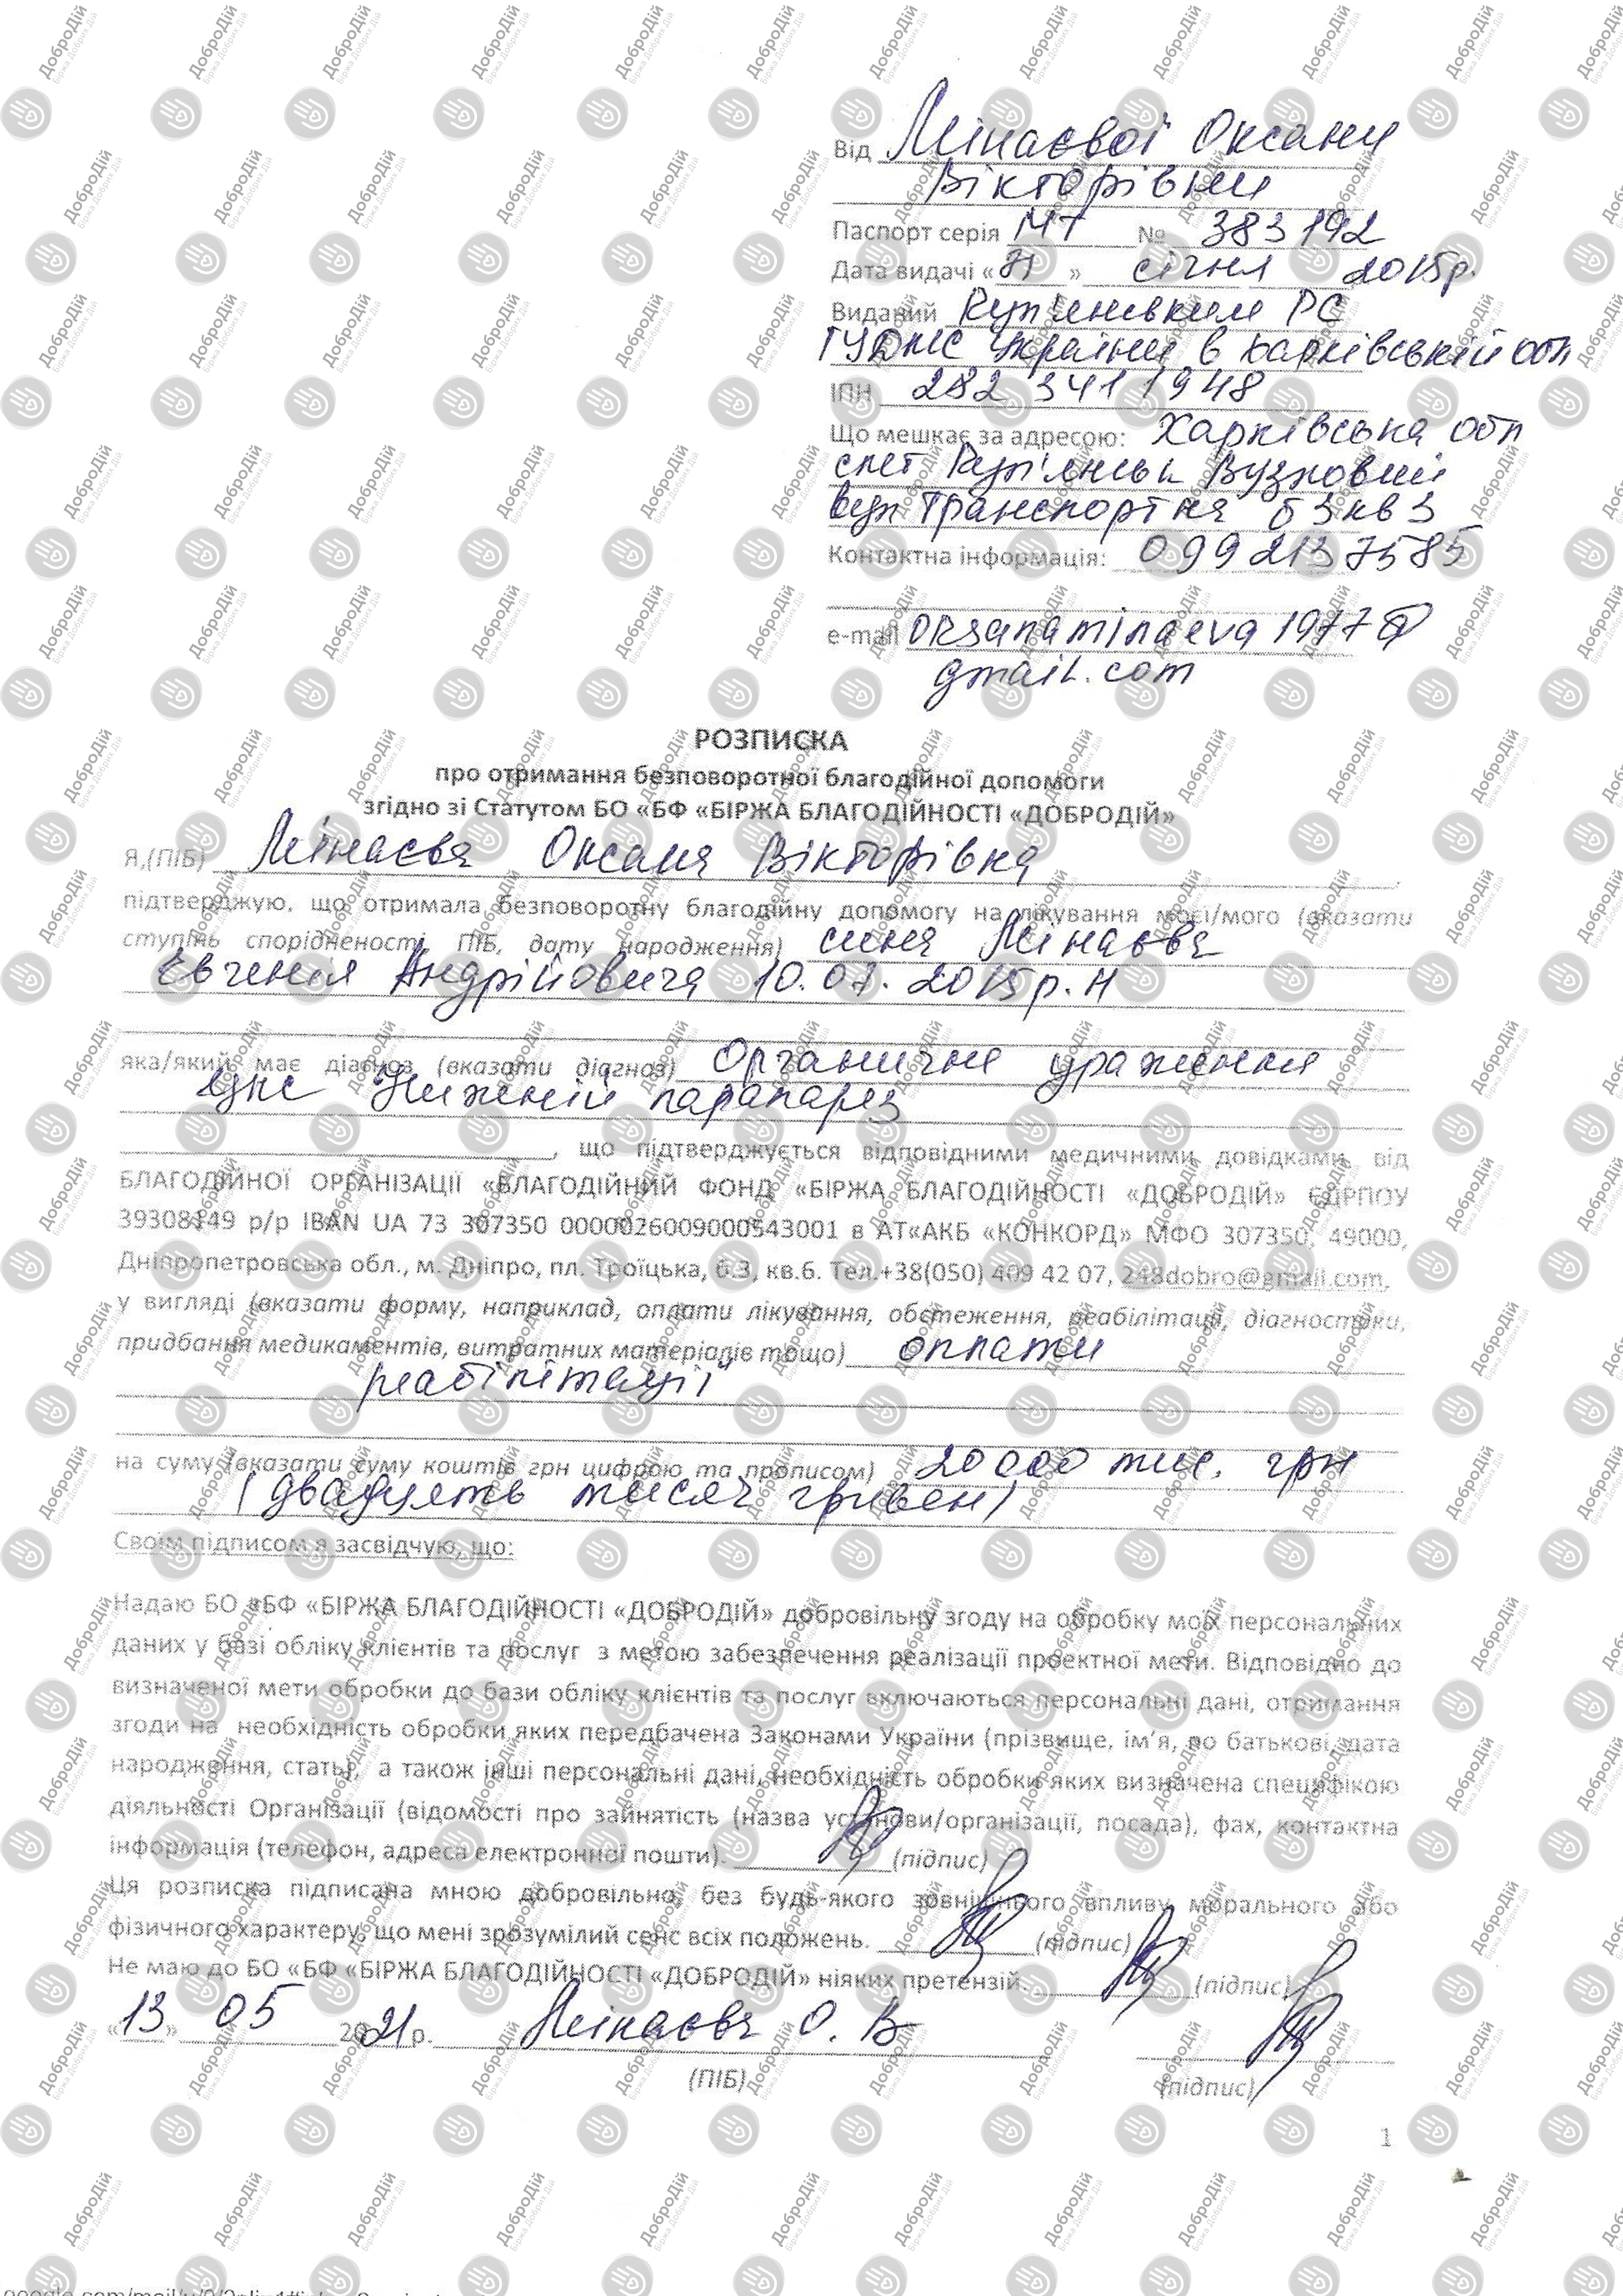 Від Мінаєвої Оксани
Вікторівни
Паспорт серія МТ № 383192
Дата видачі « » січня 2015р.
Виданий Куп'янським РС
ГУДМС України в Харківській обл
ІПН 2823411948
Що мешкає за адресою: Харківська обл
смт Куп'янськ Вузловий
вул Транспортна б 3 кв 3
Контактна інформація: 099 213 75 85
e-mail oksanaminaeva1977@
gmail.com
РОЗПИСКА
про отримання безповоротної благодійної допомоги
згідно зі Статутом БО «БФ «БІРЖА БЛАГОДІЙНОСТІ «ДОБРОДІЙ»
Я,(ПІБ) Мінаєва Оксана Вікторівна
підтверджую, що отримала безповоротну благодійну допомогу на лікування моєї/мого (вказати
ступінь спорідненості ПІБ, дату народження) сина Мінаєва
Євгенія Андрійовича 10.07.2015р.н
яка/який має діагноз (вказати діагноз) Органичне ураження
цнс Нижений парапарез
, що підтверджується відповідними медичними довідками, від
БЛАГОДІЙНОЇ ОРГАНІЗАЦІЇ «БЛАГОДІЙНИЙ ФОНД «БІРЖА БЛАГОДІЙНОСТІ «ДОБРОДІЙ» ЄДРПОУ
39308149 р/р IBAN UA 73 307350 0000026009000543001 в АТ«АКБ «КОНКОРД» МФО 307350, 49000,
Дніпропетровська обл., м. Дніпро, пл. Троїцька, б.3, кв.6. Тел.+38(050) 409 42 07, 248dobro@gmail.com,
у вигляді (вказати форму, наприклад, оплати лікування, обстеження, реабілітації, діагностики,
придбання медикаментів, витратних матеріалів тощо) оплати
реабілітації
на суму (вказати суму коштів грн цифрою та прописом) 20000 тис. грн
(двадцять тисяч гривен)
Своїм підписом я засвідчую, що:
Надаю БО «БФ «БІРЖА БЛАГОДІЙНОСТІ «ДОБРОДІЙ» добровільну згоду на обробку моїх персональних
даних у базі обліку клієнтів та послуг з метою забезпечення реалізації проектної мети. Відповідно до
визначеної мети обробки до бази обліку клієнтів та послуг включаються персональні дані, отримання
згоди на необхідність обробки яких передбачена Законами України (прізвище, ім'я, по батькові, дата
народження, стать), а також інші персональні дані, необхідність обробки яких визначена специфікою
діяльності Організації (відомості про зайнятість (назва установи/організації, посада), фах, контактна
інформація (телефон, адреса електронної пошти). (підпис)
Ця розписка підписана мною добровільно, без будь-якого зовнішнього впливу морального або
фізичного характеру, що мені зрозумілий сенс всіх положень. (підпис)
Не маю до БО «БФ «БІРЖА БЛАГОДІЙНОСТІ «ДОБРОДІЙ» ніяких претензій. (підпис)
«13» 05 2021р. Мінаєва О. В
(ПІБ) (підпис)
1